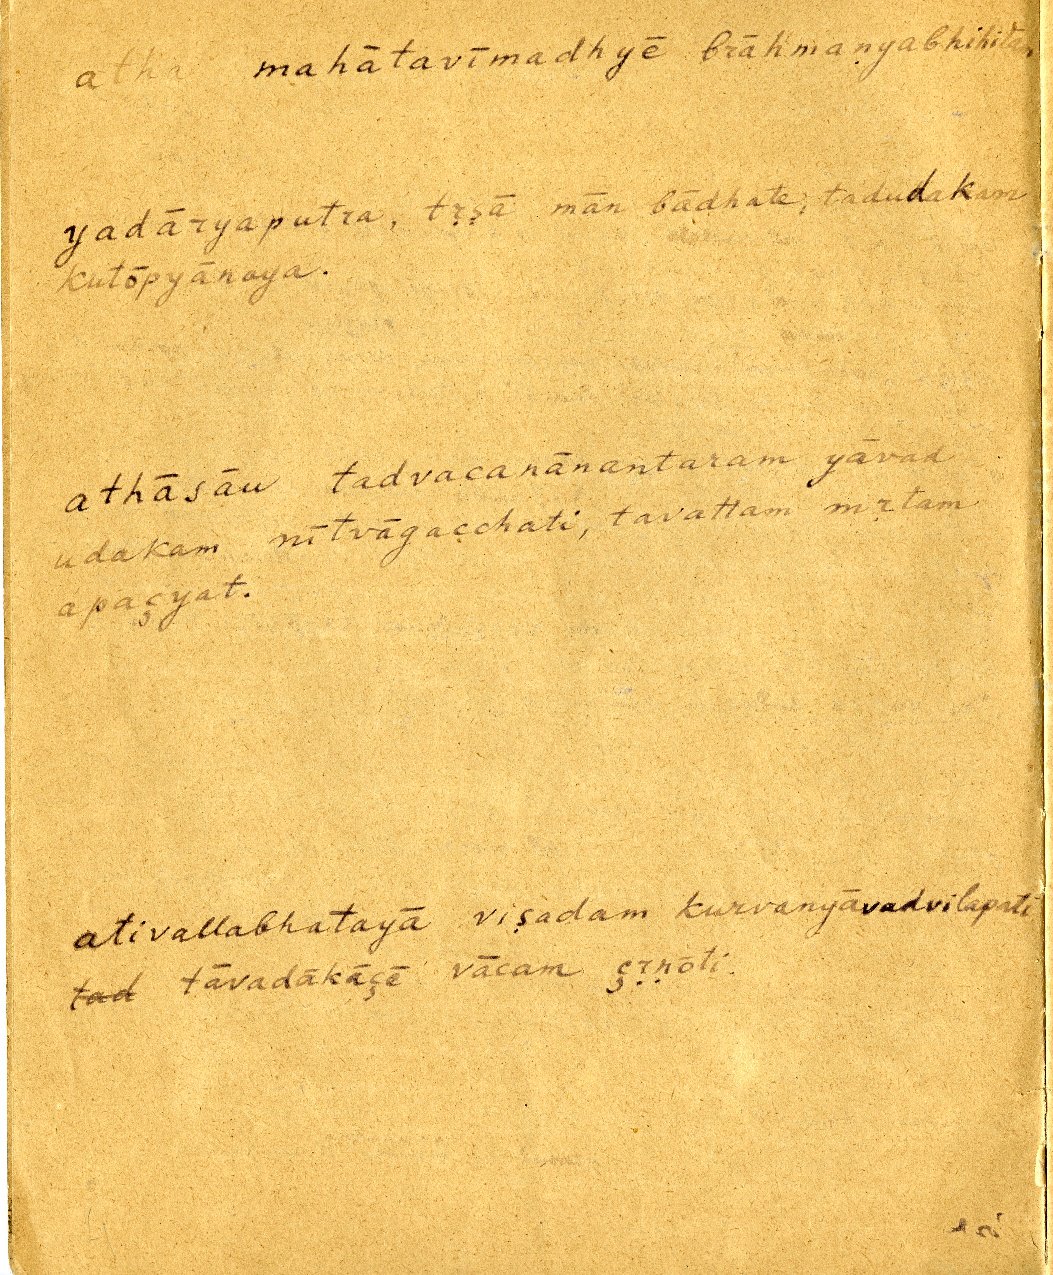 atha mahātavīmadhyē brāhmaṇyabhihitā
yadāryaputra, tṛṣā mān bādhate; tadudakam
kutōpyānaya.
athāsāu tadvacanānantaram yāvad
udakam nītvāgacchati, tavattam mṛtam
apaçyat.
ativallabhatayā viṣadam kurvanyāvadvilapati
tad tāvadākāçē vācam çṛṇōti.